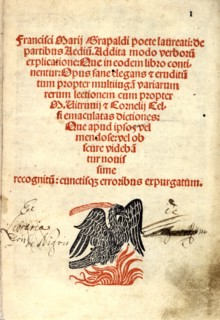 1
Francisci Marij Grapaldi poete laureati: de
partibus Aediũ. Addita modo verborũ
explicatione: Que in eodem libro conti
nentur: Opus sane elegans & eruditũ
tum propter multiiugã variarum
rerum lectionem cum propter
M. Uitruuij & Cornelij Cel
si emaculatas dictiones:
Que apud ipsos vel
mendose: vel ob
scure videbã
tur nouis
sime
recognitũ: cunctisq; erroribus expurgatum.
Libraria